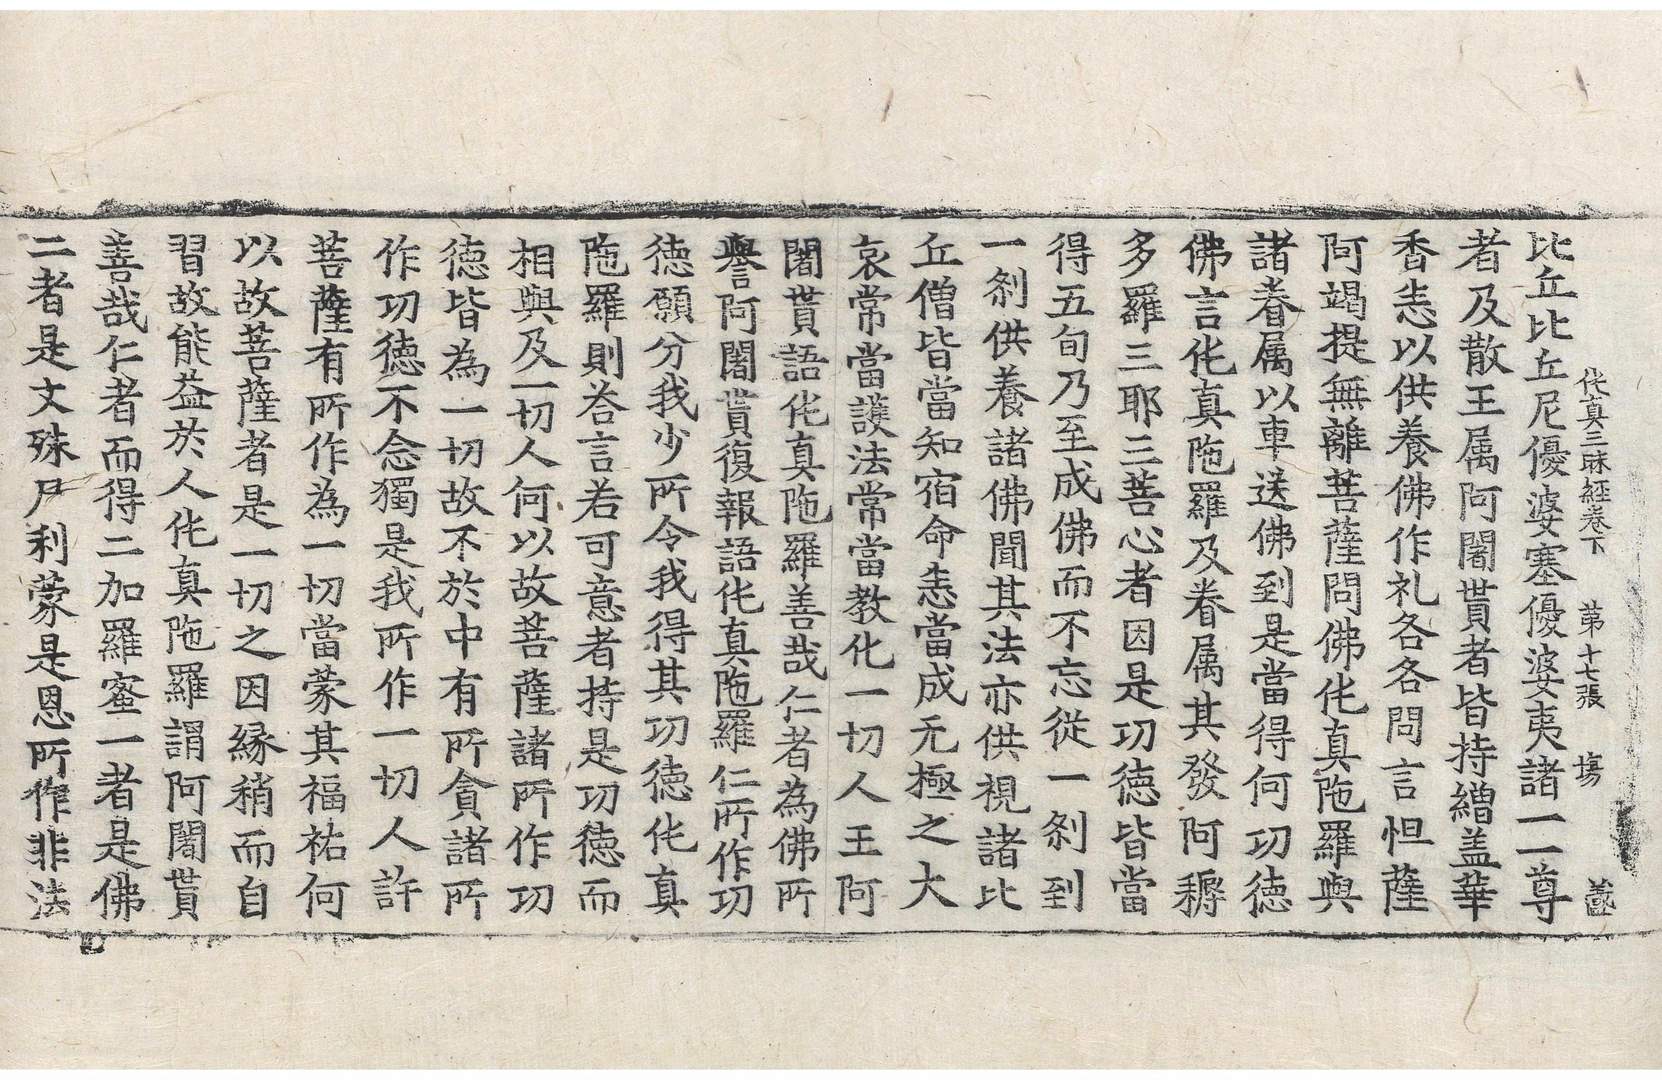 伅真三昧経卷下 第十七張 塲
比丘比丘尼優婆塞優婆夷諸一一尊
者及散王属阿闍貰者皆持繒盖華
香恙以供養佛作礼各各問言怛薩
阿竭提無離菩薩問佛伅真陁羅與
諸眷属以車送佛到是當得何功德
佛言伅真陁羅及眷属其發阿耨
多羅三耶三菩心者因是功德皆當
得五旬乃至成佛而不忘從一刹到
一刹供養諸佛聞其法亦供視諸比
丘僧皆當知宿命恙當成无極之大
哀常當護法常當教化一切人王阿
闍貰語伅真陁羅善哉仁者為佛所
譽阿闍貰復報語伅真陁羅仁所作功
德願分我少所令我得其功德伅真
陁羅則荅言若可意者持是功德而
相與及一切人何以故菩薩諸所作功
德皆為一切故不於中有所貪諸所
作功德不念獨是我所作一切人許
菩薩有所作為一切當蒙其福祐何
以故菩薩者是一切之因緣稍而自
習故能益於人伅真陁羅謂阿闍貰
善哉仁者而得二加羅蜜一者是佛
二者是文殊尸利蒙是恩所作非法